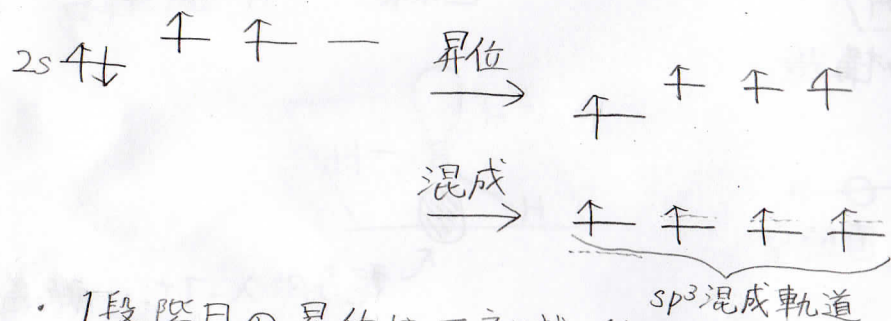 2s
昇位
混成
sp³混成軌道
・1段階目の昇位